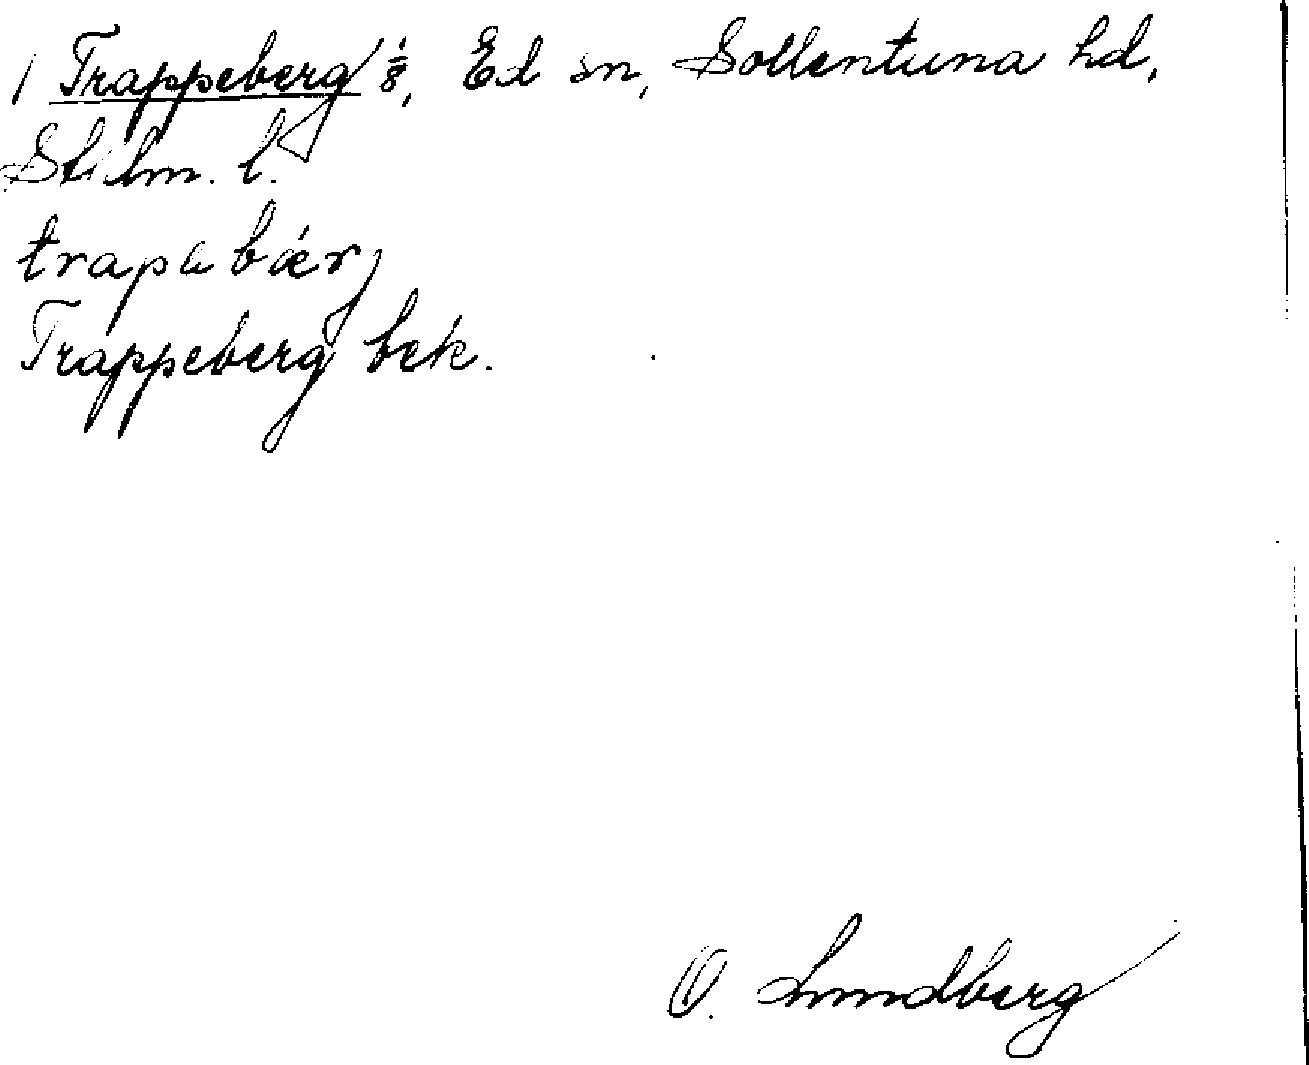 1 Trappeberg 1/8, Ed sn, Sollentuna hd,
Sthlm. l.
trapebærj
Trappeberg bek.
O. Lundberg